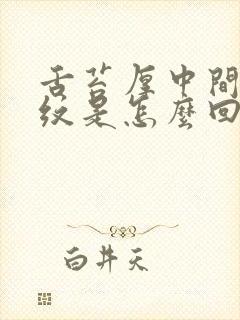 舌苔厚中間
纹是怎麽回
白井天